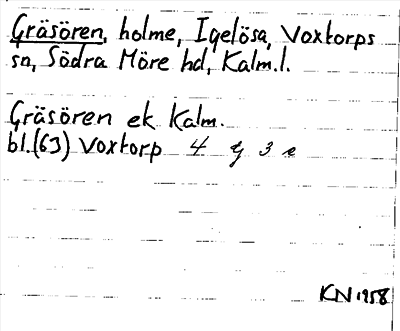 Gräsören, holme, Igelösa, Voxtorps
sn, Södra Möre hd, Kalm.l.
Gräsören ek Kalm.
bl.(63) Voxtorp 4 G 3 e
KN 1958